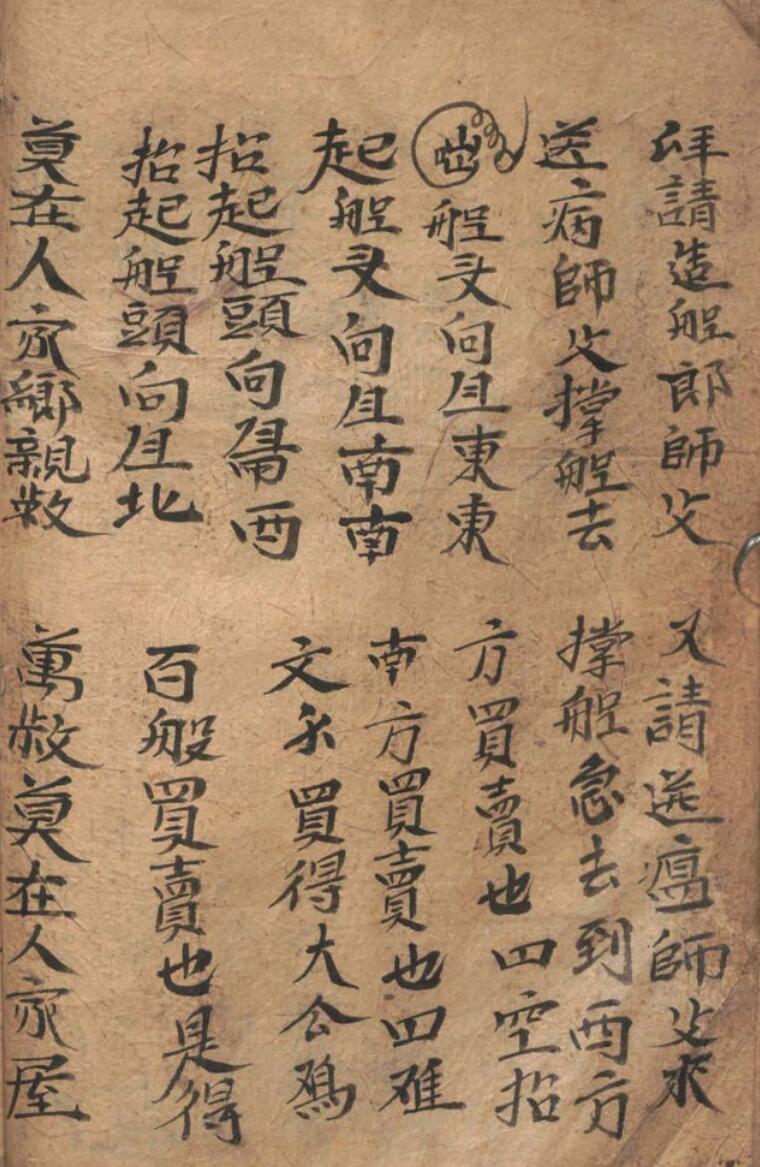 拜請造船郎師父 又請送瘟師父來
送病師父撑船去 撑船急去到西方
船头向且東東 方買賣也四空招
起船头向且南南 南方買賣也四难
招起船頭向西 文不買得大公鵝
招起船頭向且北 百般買賣也是得
莫在人家鄉親救 萬救莫在人家屋